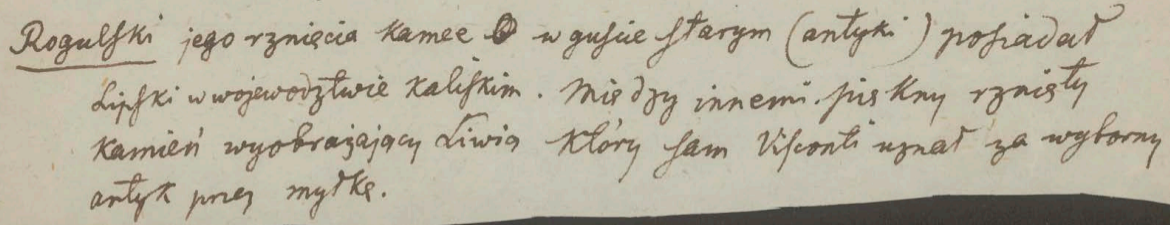 Rogulski jego rznięcia kamee w guście starym (antyki) posiadał
Lipski w wojewodztwie kaliskim. Między innemi piękny rznięty
kamień wyobrażający Liwią który sam Visconti uznał za wyborny
antyk przez myłkę.